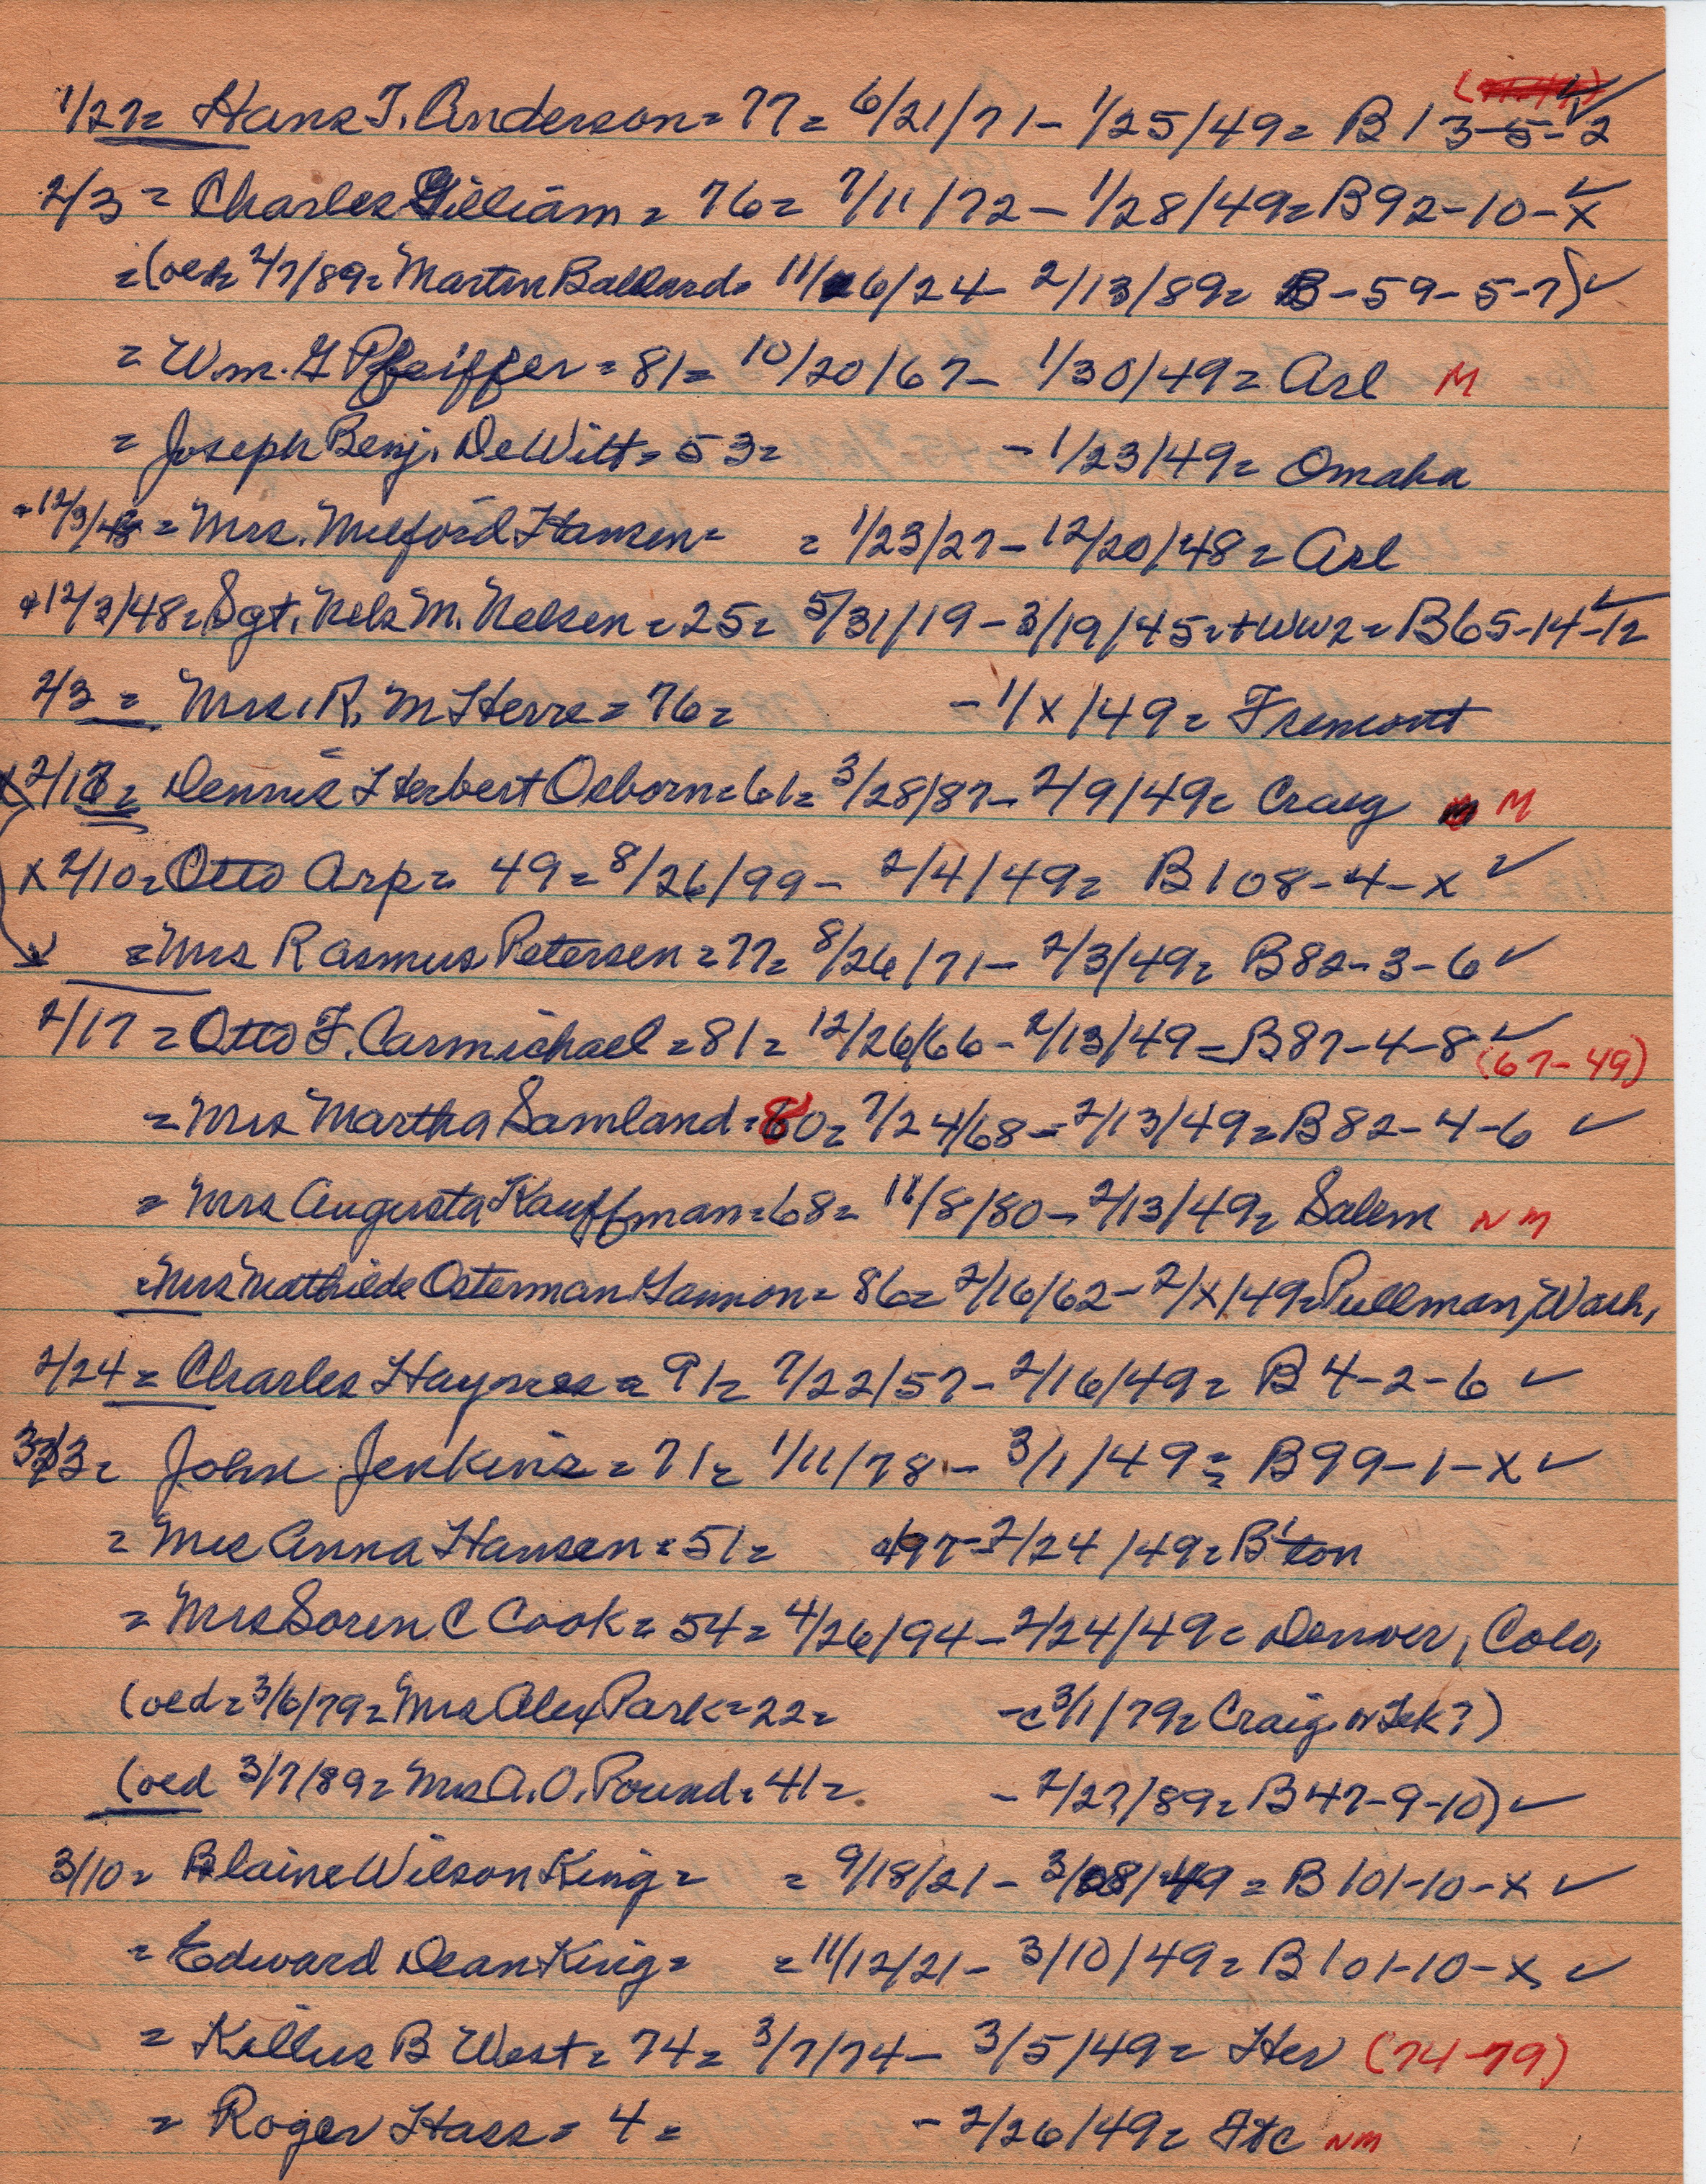 1/27= Hans J. Anderson= 77= 6/21/71- 1/25/49= B13-5-2 ✓
2/3= Charles Gilliam= 76= 7/11/72- 1/28/49= B92-10-X ✓
=(old= 2/7/89= Martin Ballard= 11/26/24- 2/13/89= B-59-5-7) ✓
= Wm. G Pfeiffer= 81= 10/20/67- 1/30/49= Arl M
= Joseph Benj. DeWitt= 53= -1/23/49= Omaha
=12/3/48= Mrs. Milford Hansen= = 1/23/27- 12/20/48= Arl
+12/3/48= Sgt. Nels M. Nelsen= 25= 5/31/19- 3/19/45=+WW2= B65-14-12 ✓
2/3= Mrs. R. M Herre= 76= -1/x/49= Fremont
x2/17= Dennis Herbert Osborn= 61= 3/28/87- 2/9/49= Craig M
x2/10= Otto Arp= 49= 8/26/99- 2/4/49= B108-4-X ✓
=Mrs Rasmus Petersen= 77= 8/26/71- 2/3/49= B82-3-6 ✓
2/17= Otto F. Carmichael= 81= 12/26/66- 2/13/49= B87-4-8 ✓ (67-49)
=Mrs Martha Samland= 80= 7/24/68-=2/13/49= B82-4-6 ✓
= Mrs Augusta Kauffman= 68= 11/8/80- 2/13/49= Salem NM
=Mrs Mathilde Osterman Gannon= 86= 2/16/62- 2/x/49= Pullman, Wash,
2/24= Charles Haynes= 91= 7/22/57- 2/16/49= B4-2-6 ✓
3/3= John Jenkins= 71= 1/11/78- 3/1/49= B99-1-X ✓
= Mrs Anna Hansen= 51= 97-2/24/49= B'ton
= Mrs Soren C Cook= 54= 4/26/94- 2/24/49= Denver, Colo,
(old= 3/6/79= Mrs Alex Park= 22= -c3/1/79= Craig or Tek?)
(old 3/7/89= Mrs A. O. Pound= 41= - 2/27/89= B47-9-10) ✓
3/10= Blaine Wilson King= = 9/18/21- 3/08/49= B101-10-X ✓
= Edward Dean King= = 11/12/21- 3/10/49= B101-10-X ✓
= Killus B West= 74= 3/7/74- 3/5/49= Her (74-79)
= Roger Hass= 4= - 2/26/49= NM